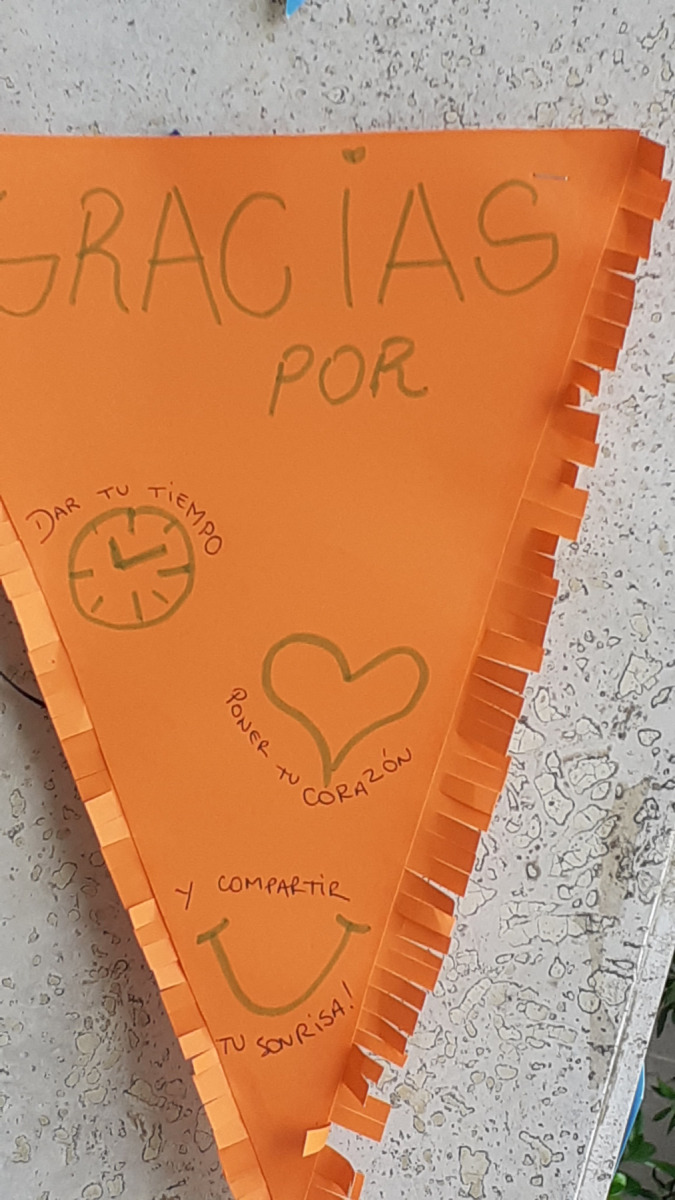 GRACIAS
POR
DAR TU TIEMPO
PONER TU CORAZÓN
Y COMPARTIR
TU SONRISA!